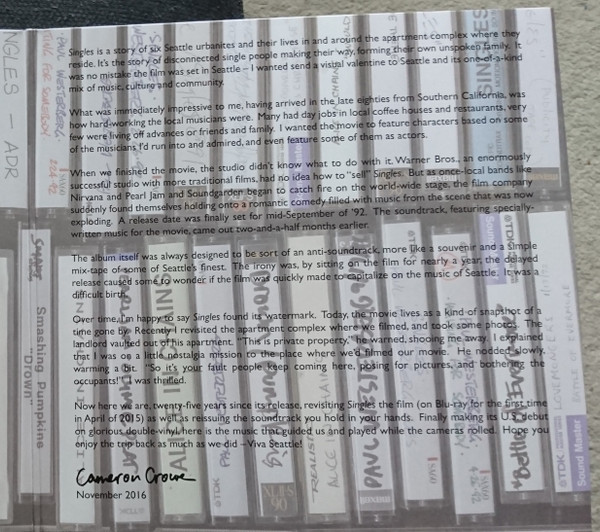 Singles is a story of six Seattle urbanites and their lives in and around the apartment complex where they
reside. It's the story of disconnected single people making their way, forming their own unspoken family. It
was no mistake the film was set in Seattle – I wanted send a visual valentine to Seattle and its one-of-a-kind
mix of music, culture and community.
What was immediately impressive to me, having arrived in the late eighties from Southern California, was
how hard-working the local musicians were. Many had day jobs in local coffee houses and restaurants, very
few were living off advances or friends and family. I wanted the movie to feature characters based on some
of the musicians I'd run into and admired, and even feature some of them as actors.
When we finished the movie, the studio didn't know what to do with it. Warner Bros., an enormously
successful studio with more traditional films, had no idea how to "sell" Singles. But as once-local bands like
Nirvana and Pearl Jam and Soundgarden began to catch fire on the world-wide stage, the film company
suddenly found themselves holding onto a romantic comedy filled with music from the scene that was now
exploding. A release date was finally set for mid-September of '92. The soundtrack, featuring specially-
written music for the movie, came out two-and-a-half months earlier.
The album itself was always designed to be sort of an anti-soundtrack, more like a souvenir and a simple
mix-tape of some of Seattle's finest. The irony was, by sitting on the film for nearly a year, the delayed
release caused some to wonder if the film was quickly made to capitalize on the music of Seattle. It was a
difficult birth.
Over time, I'm happy to say Singles found its watermark. Today, the movie lives as a kind of snapshot of a
time gone by. Recently I revisited the apartment complex where we filmed, and took some photos. The
landlord vaulted out of his apartment. "This is private property," he warned, shooing me away. I explained
that I was on a little nostalgia mission to the place where we'd filmed our movie. He nodded slowly,
warming a bit. "So it's your fault people keep coming here, posing for pictures, and bothering the
occupants!" I was thrilled.
Now here we are, twenty-five years since its release, revisiting Singles the film (on Blu-ray for the first time
in April of 2015) as well as reissuing the soundtrack you hold in your hands. Finally making its U.S. debut
on glorious double-vinyl, here is the music that guided us and played while the cameras rolled. Hope you
enjoy the trip back as much as we did – Viva Seattle!
Cameron Crowe
November 2016
NGLES – ADR
PAUL WESTERBERG
Smashing Pumpkins
"Drown"
SINGLES
TDK
Sound Master